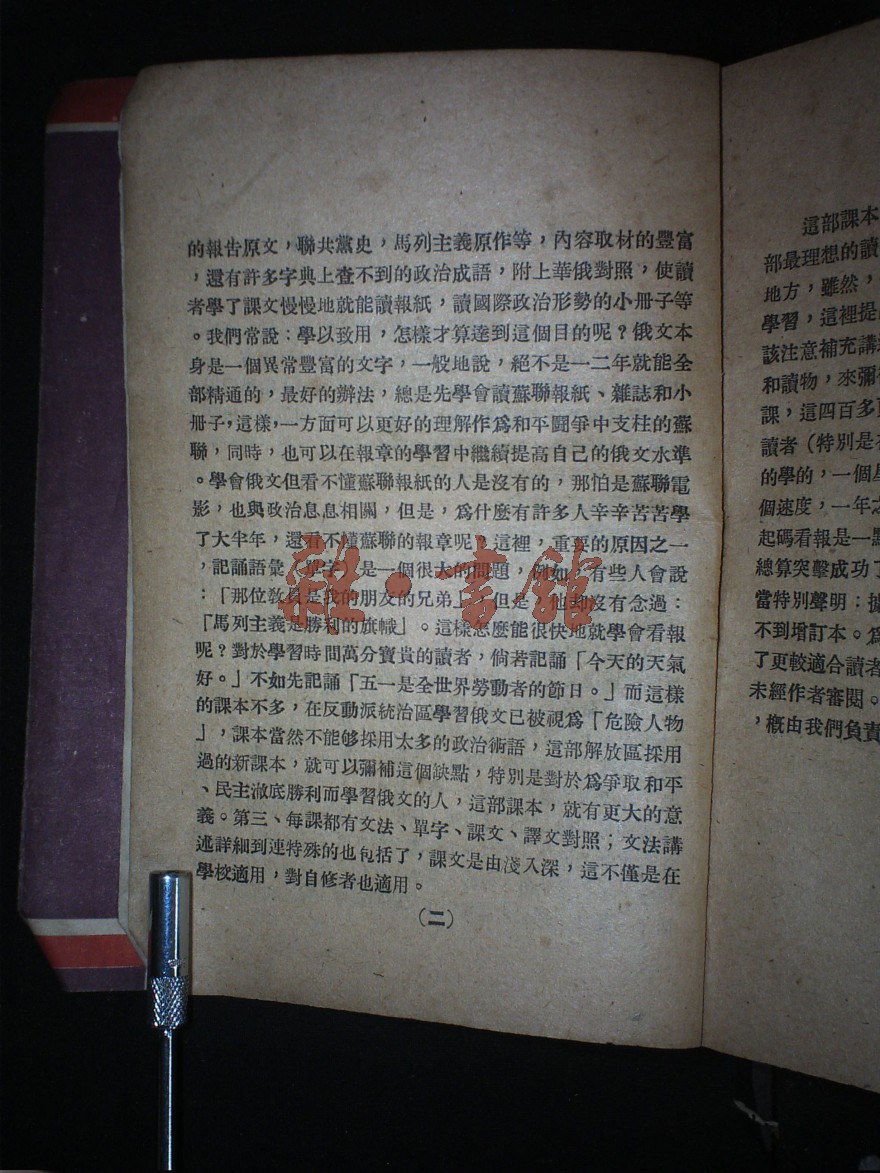 的報告原文，聯共黨史，馬列主義原作等，內容取材的豐富
，還有許多字典上查不到的政治成語，附上華俄對照，使讀
者學了課文慢慢地就能讀報紙，讀國際政治形勢的小冊子等
。我們常說：學以致用，怎樣才算達到這個目的呢？俄文本
身是一個異常豐富的文字，一般地說，絕不是一二年就能全
部精通的，最好的辦法，總是先學會讀蘇聯報紙、雜誌和小
冊子，這樣，一方面可以更好的理解作爲和平鬪爭中支柱的蘇
聯，同時，也可以在報章的學習中繼續提高自己的俄文水準
。學會俄文但看不懂蘇聯報紙的人是沒有的，那怕是蘇聯電
影，也與政治息息相關，但是，爲什麼有許多人辛辛苦苦學
了大半年，還看不懂蘇聯的報章呢？這裡，重要的原因之一
，記誦語彙（單字）是一個很大的問題，例如，有些人會說
：「那位教員是我的朋友的兄弟」，但是，他却沒有念過：
「馬列主義是勝利的旗幟」。這樣怎麼能很快地就學會看報
呢？對於學習時間萬分寶貴的讀者，倘若記誦「今天的天氣
好。」不如先記誦「五一是全世界勞動者的節日。」而這樣
的課本不多，在反動派統治區學習俄文已被視爲「危險人物
」，課本當然不能够採用太多的政治術語，這部解放區採用
過的新課本，就可以彌補這個缺點，特別是對於爲爭取和平
、民主澈底勝利而學習俄文的人，這部課本，就有更大的意
義。第三、每課都有文法、單字、課文、譯文對照；文法講
述詳細到連特殊的也包括了，課文是由淺入深，這不僅是在
學校適用，對自修者也適用。
（二）
這部課本
部最理想的讀
地方，雖然，
學習，這裡提
該注意補充講
和讀物，來彌
課，這四百多
讀者（特別是
的學的，一個
個速度，一年之
起碼看報是一點
總算突擊成功了
當特別聲明：據
不到增訂本。爲
了更較適合讀者
未經作者審閱。
，概由我們負責
雜·書館